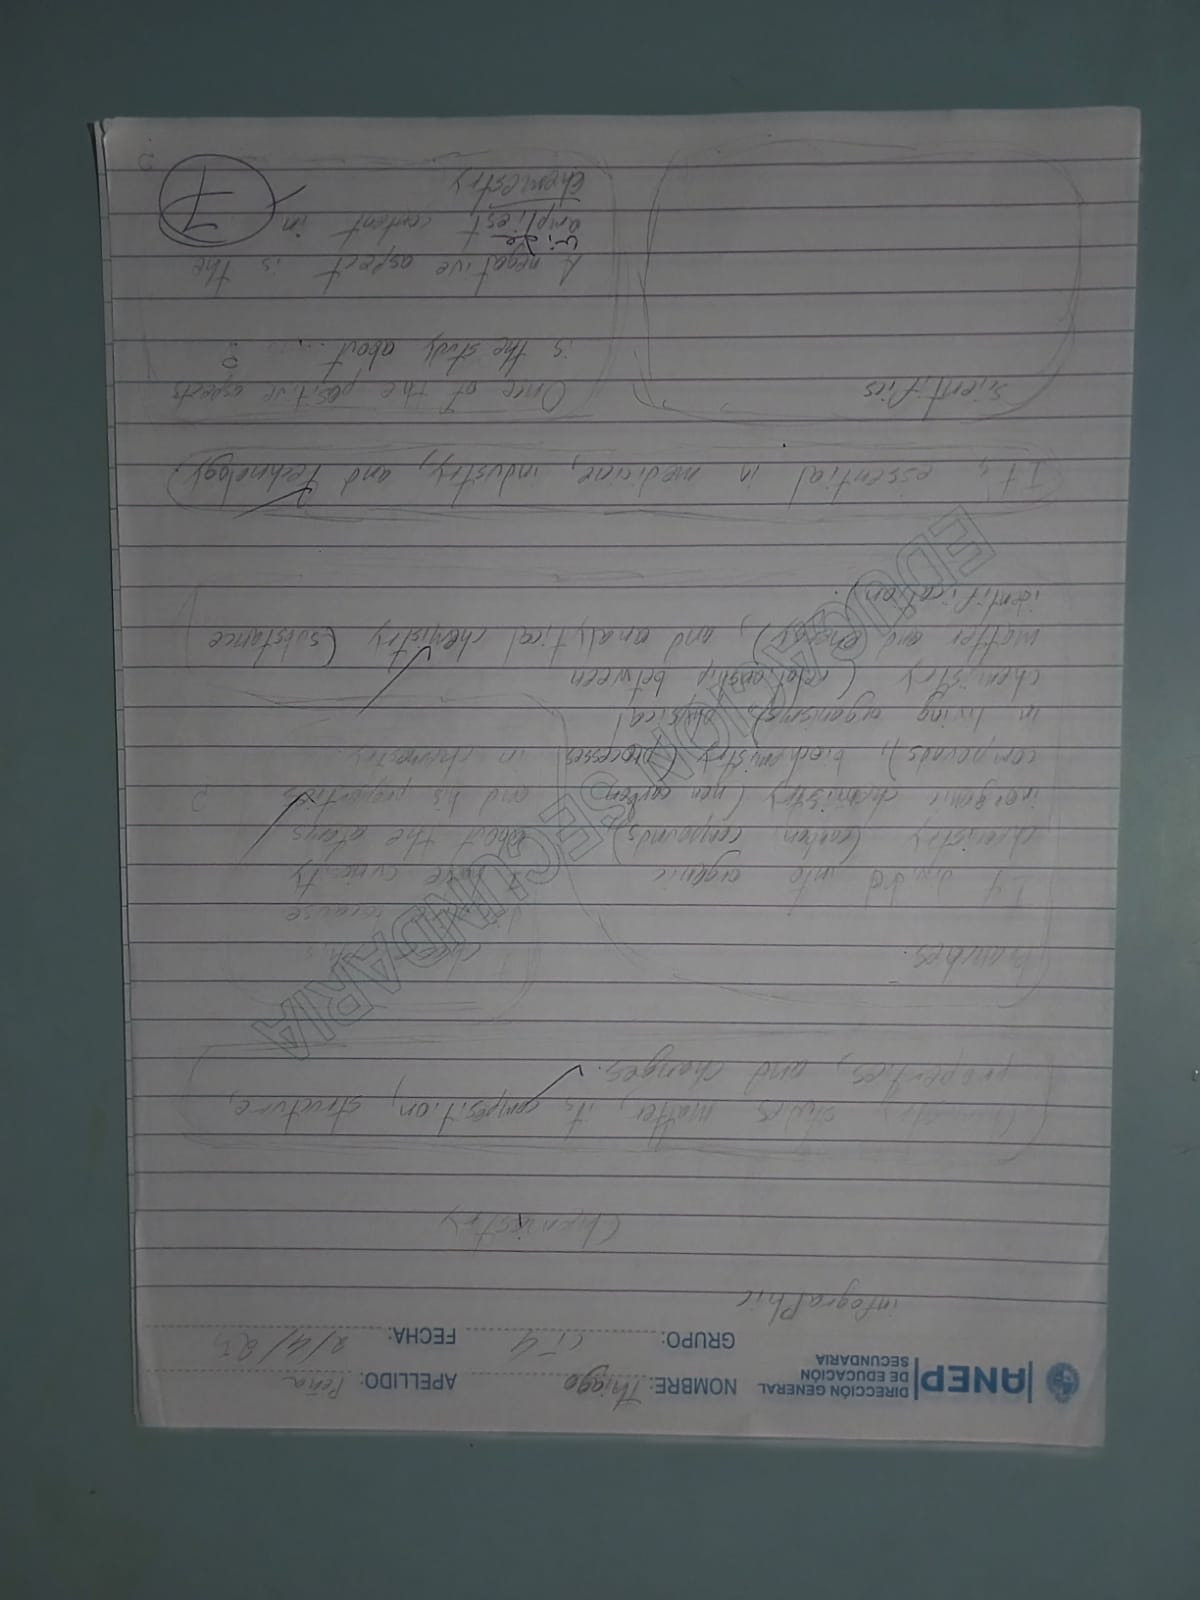 ANEP DIRECCIÓN GENERAL
DE EDUCACIÓN
SECUNDARIA
NOMBRE: Thiago APELLIDO: Peña
GRUPO: FECHA: 2/4/25
infographic
Chemistry
Chemistry studies matter, its composition, structure,
properties, and changes.
Branches.
It divided into organic
chemistry (carbon compounds),
inorganic chemistry (non carbon
compounds), biochemistry (processes
in living organisms), physical
chemistry (relationship between
matter and energy), and analytical chemistry (substance
identification).
I this
because
I have curiosity
about the atoms
and his properties
in chemestry.
EDUCACIÓN SECUNDARIA
It's essential in medicine, industry, and technology.
scientifics
Once of the positive aspects
is the study about..... ?
A negative aspect is the
wide
ampliest content in
chemestry
7